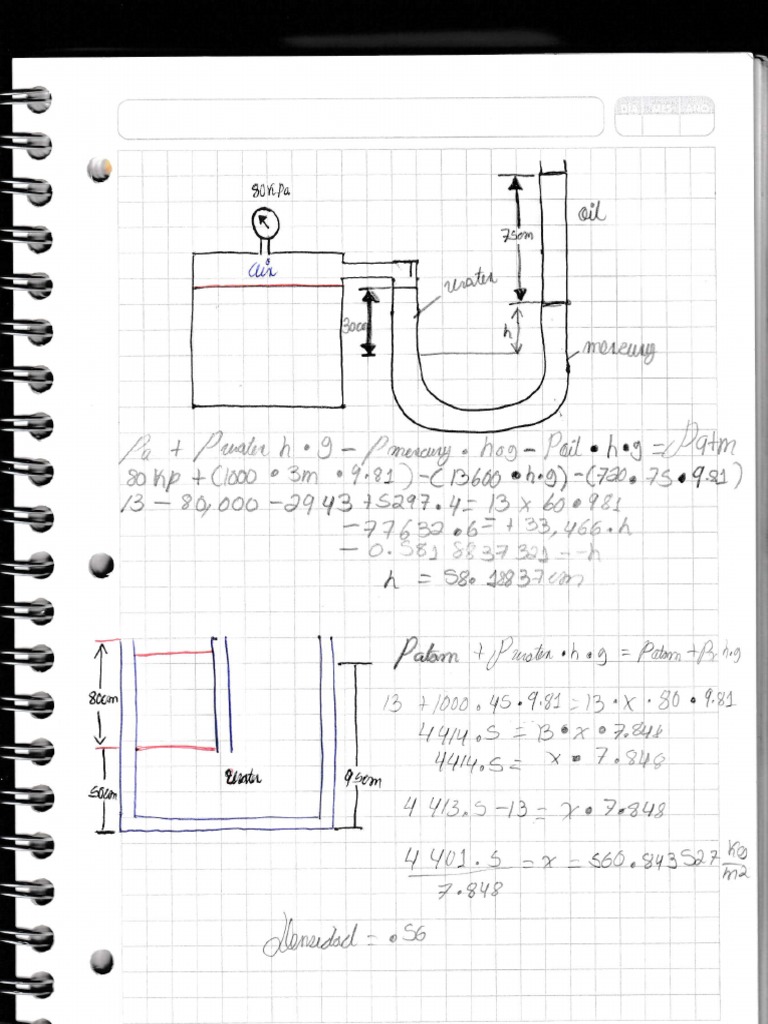 DIA MES AÑO
80 KPa
air
75cm
oil
water
30cm
h
mercury
Pa + Pwater h • g – Pmercury • h•g – Poil • h • g = Patm
80 Kp + (1000 • 3m • 9.81) – (13600 • h•g) – (720 • 75 • 9.81)
13 – 80,000 – 2943 + 5297.4 = 13 x 60 • 981
– 77632.6 = + 33,466 • h
– 0.5818837321 – – h
h = 58.18837cm
80cm
50cm
water
95cm
Patom + Pwater • h • g = Patom + P h•g
13 + 1000 • 45 • 9.81 = 13 • x • 80 • 9.81
4414.5 = 13 • x • 7.848
4414.5 = x • 7.848
4413.5 – 13 = x • 7.848
4401.5 = x = 560.843527 Kg
7.848 m2
Densidad = .56